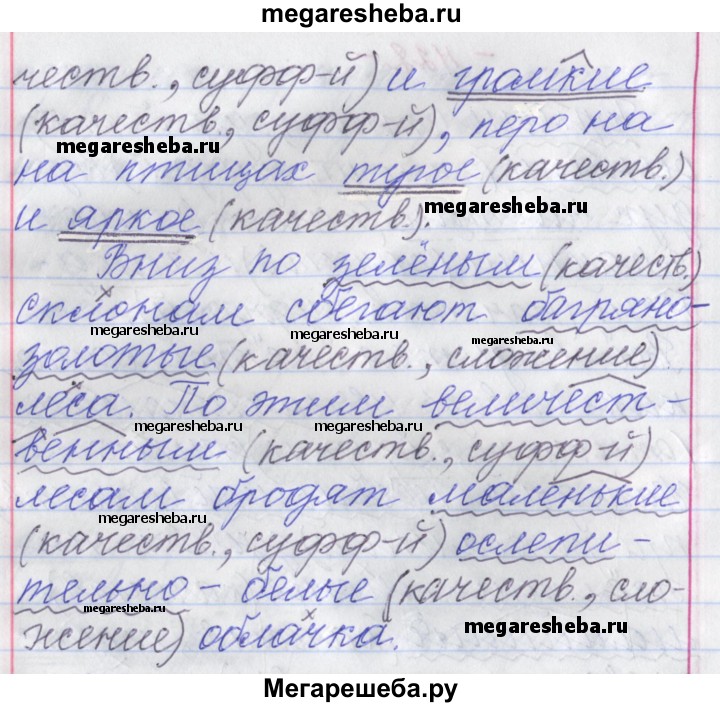 megaresheba.ru
честв., суфф-й) и громкие
(качеств., суфф-й), перо на
megaresheba.ru
на птицах турое (качеств.)
megaresheba.ru
и яркое (качеств.).
Вниз по зелёным (качеств,)
склонам сбегают багряно-
megaresheba.ru megaresheba.ru megaresheba.ru
золотые (качеств., сложение)
леса. По этим величест-
megaresheba.ru megaresheba.ru
венным (качеств., суфф-й)
лесам бродят маленькие
megaresheba.ru
(качеств., суфф-й) ослепи-
тельно-белые (качеств., сло-
megaresheba.ru
жение) облачка.
megaresheba.ru
Мегарешеба.ру